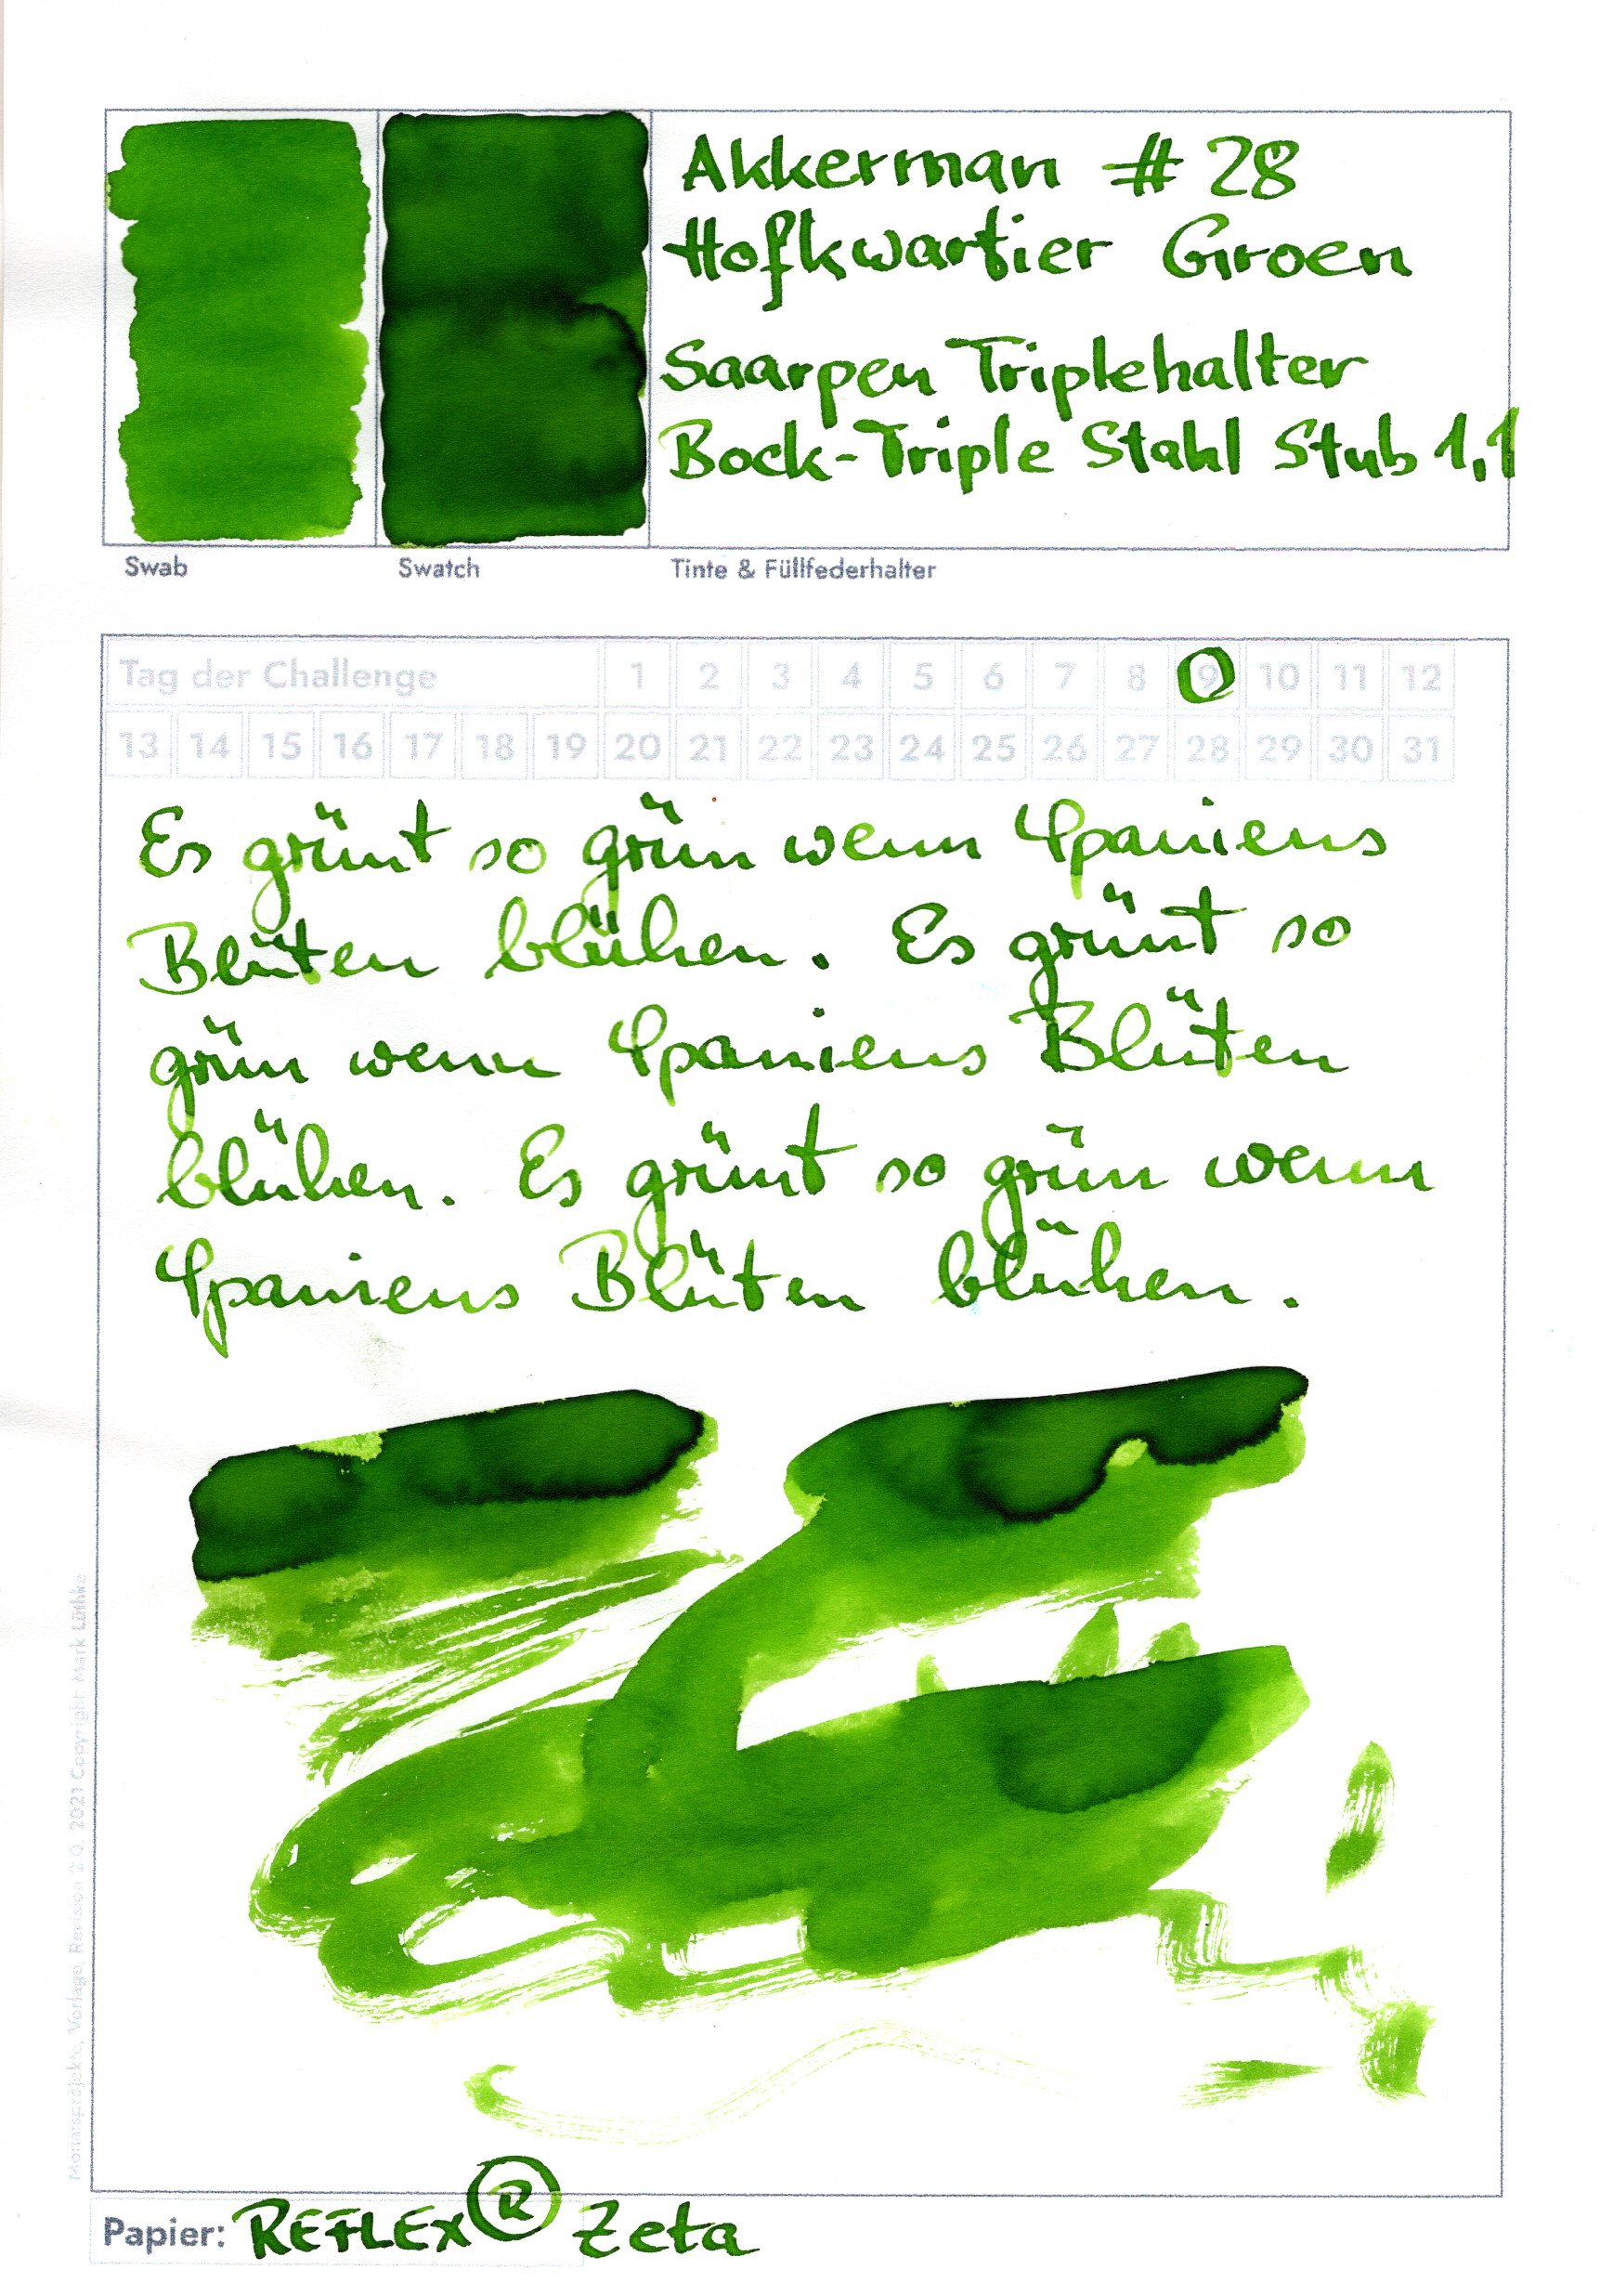 Akkerman # 28
Hofkwartier Groen
Saarpen Triplehalter
Bock-Triple Stahl Stub 1,1
Swab
Swatch
Tinte & Füllfederhalter
Tag der Challenge 1 2 3 4 5 6 7 8 9 10 11 12
13 14 15 16 17 18 19 20 21 22 23 24 25 26 27 28 29 30 31
Es grünt so grün wenn Spaniens
Blüten blühen. Es grünt so
grün wenn Spaniens Blüten
blühen. Es grünt so grün wenn
Spaniens Blüten blühen.
Monatsprojekte, Vorlage, Revision 2.0, 2021 Copyright Mark Lüthke
Papier: REFLEX® Zeta